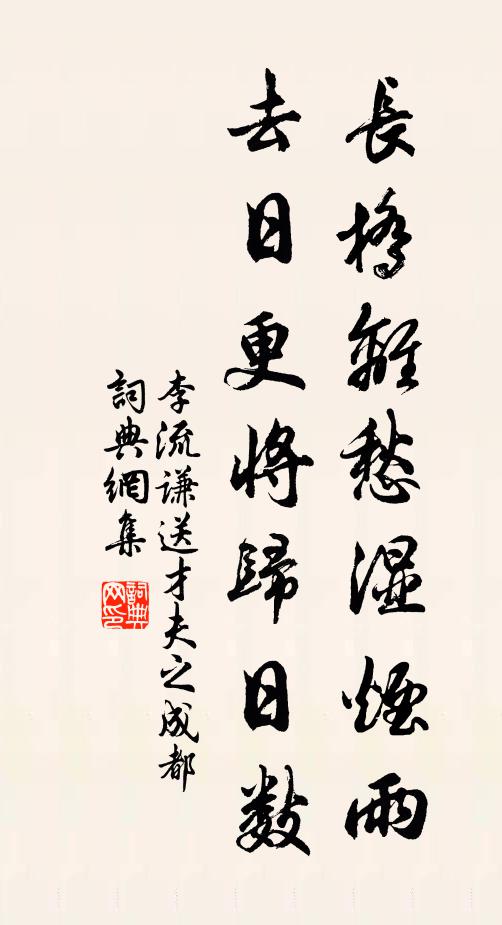 長橋離愁濕煙雨
去日更將歸日數
李流謙送才夫之成都
詞典網集
詞典网印